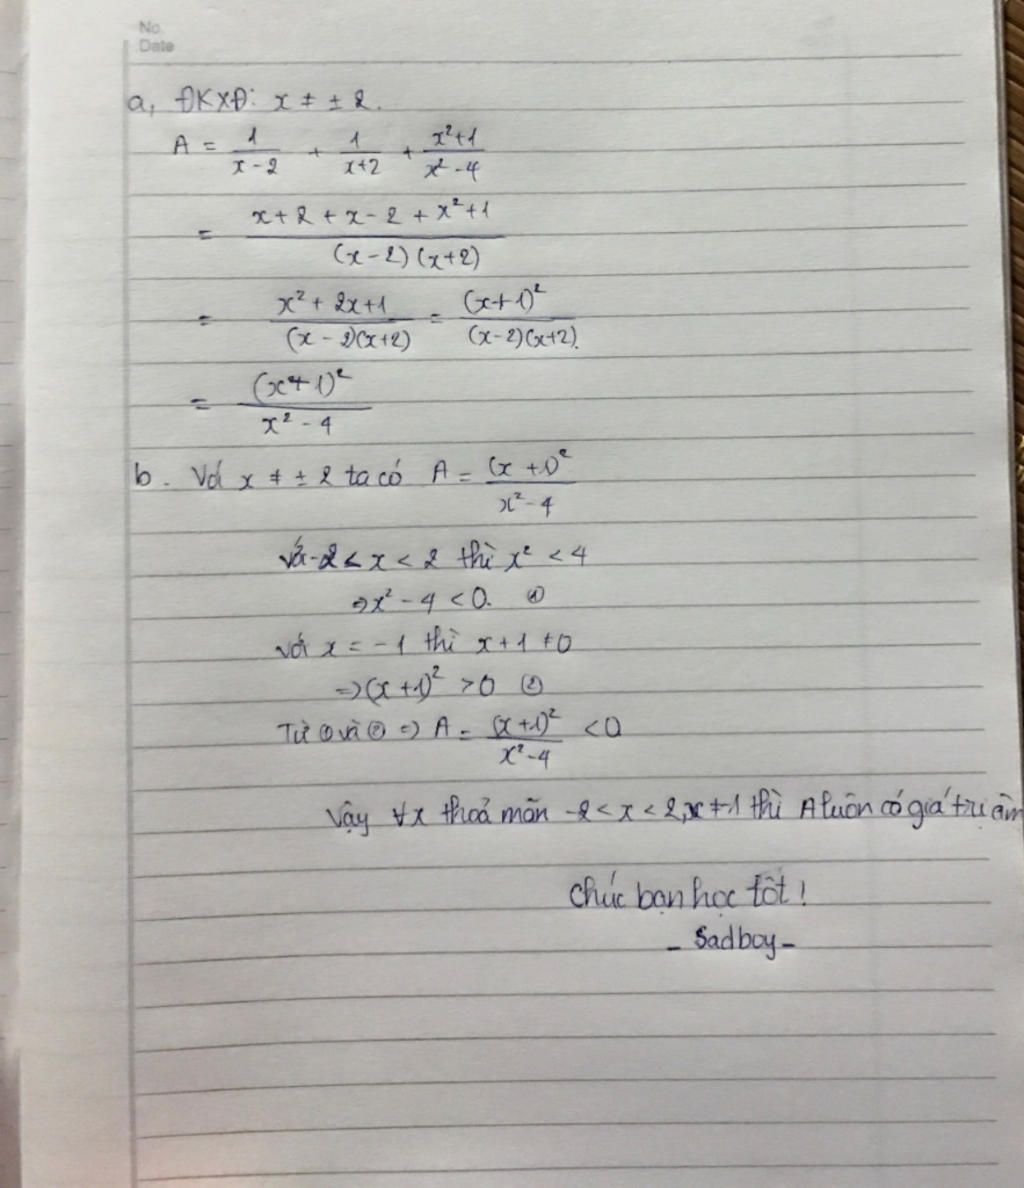 No.
Date
a, ĐKXĐ: x ≠ ± 2.
A = 1/(x-2) + 1/(x+2) + (x²+1)/(x²-4)
= (x+2+x-2+x²+1)/((x-2)(x+2))
= (x²+2x+1)/((x-2)(x+2)) = (x+1)²/((x-2)(x+2)).
= (x+1)²/(x²-4)
b. Với x ≠ ± 2 ta có A = (x+1)²/(x²-4)
Với -2 < x < 2 thì x² < 4
⇒ x² - 4 < 0. ①
với x = -1 thì x + 1 ≠ 0
⇒ (x+1)² > 0 ②
Từ ① và ② ⇒ A = (x+1)²/(x²-4) < 0
Vậy ∀x thoả mãn -2 < x < 2, x ≠ -1 thì A luôn có giá trị âm
Chúc bạn học tốt!
- Sadboy -